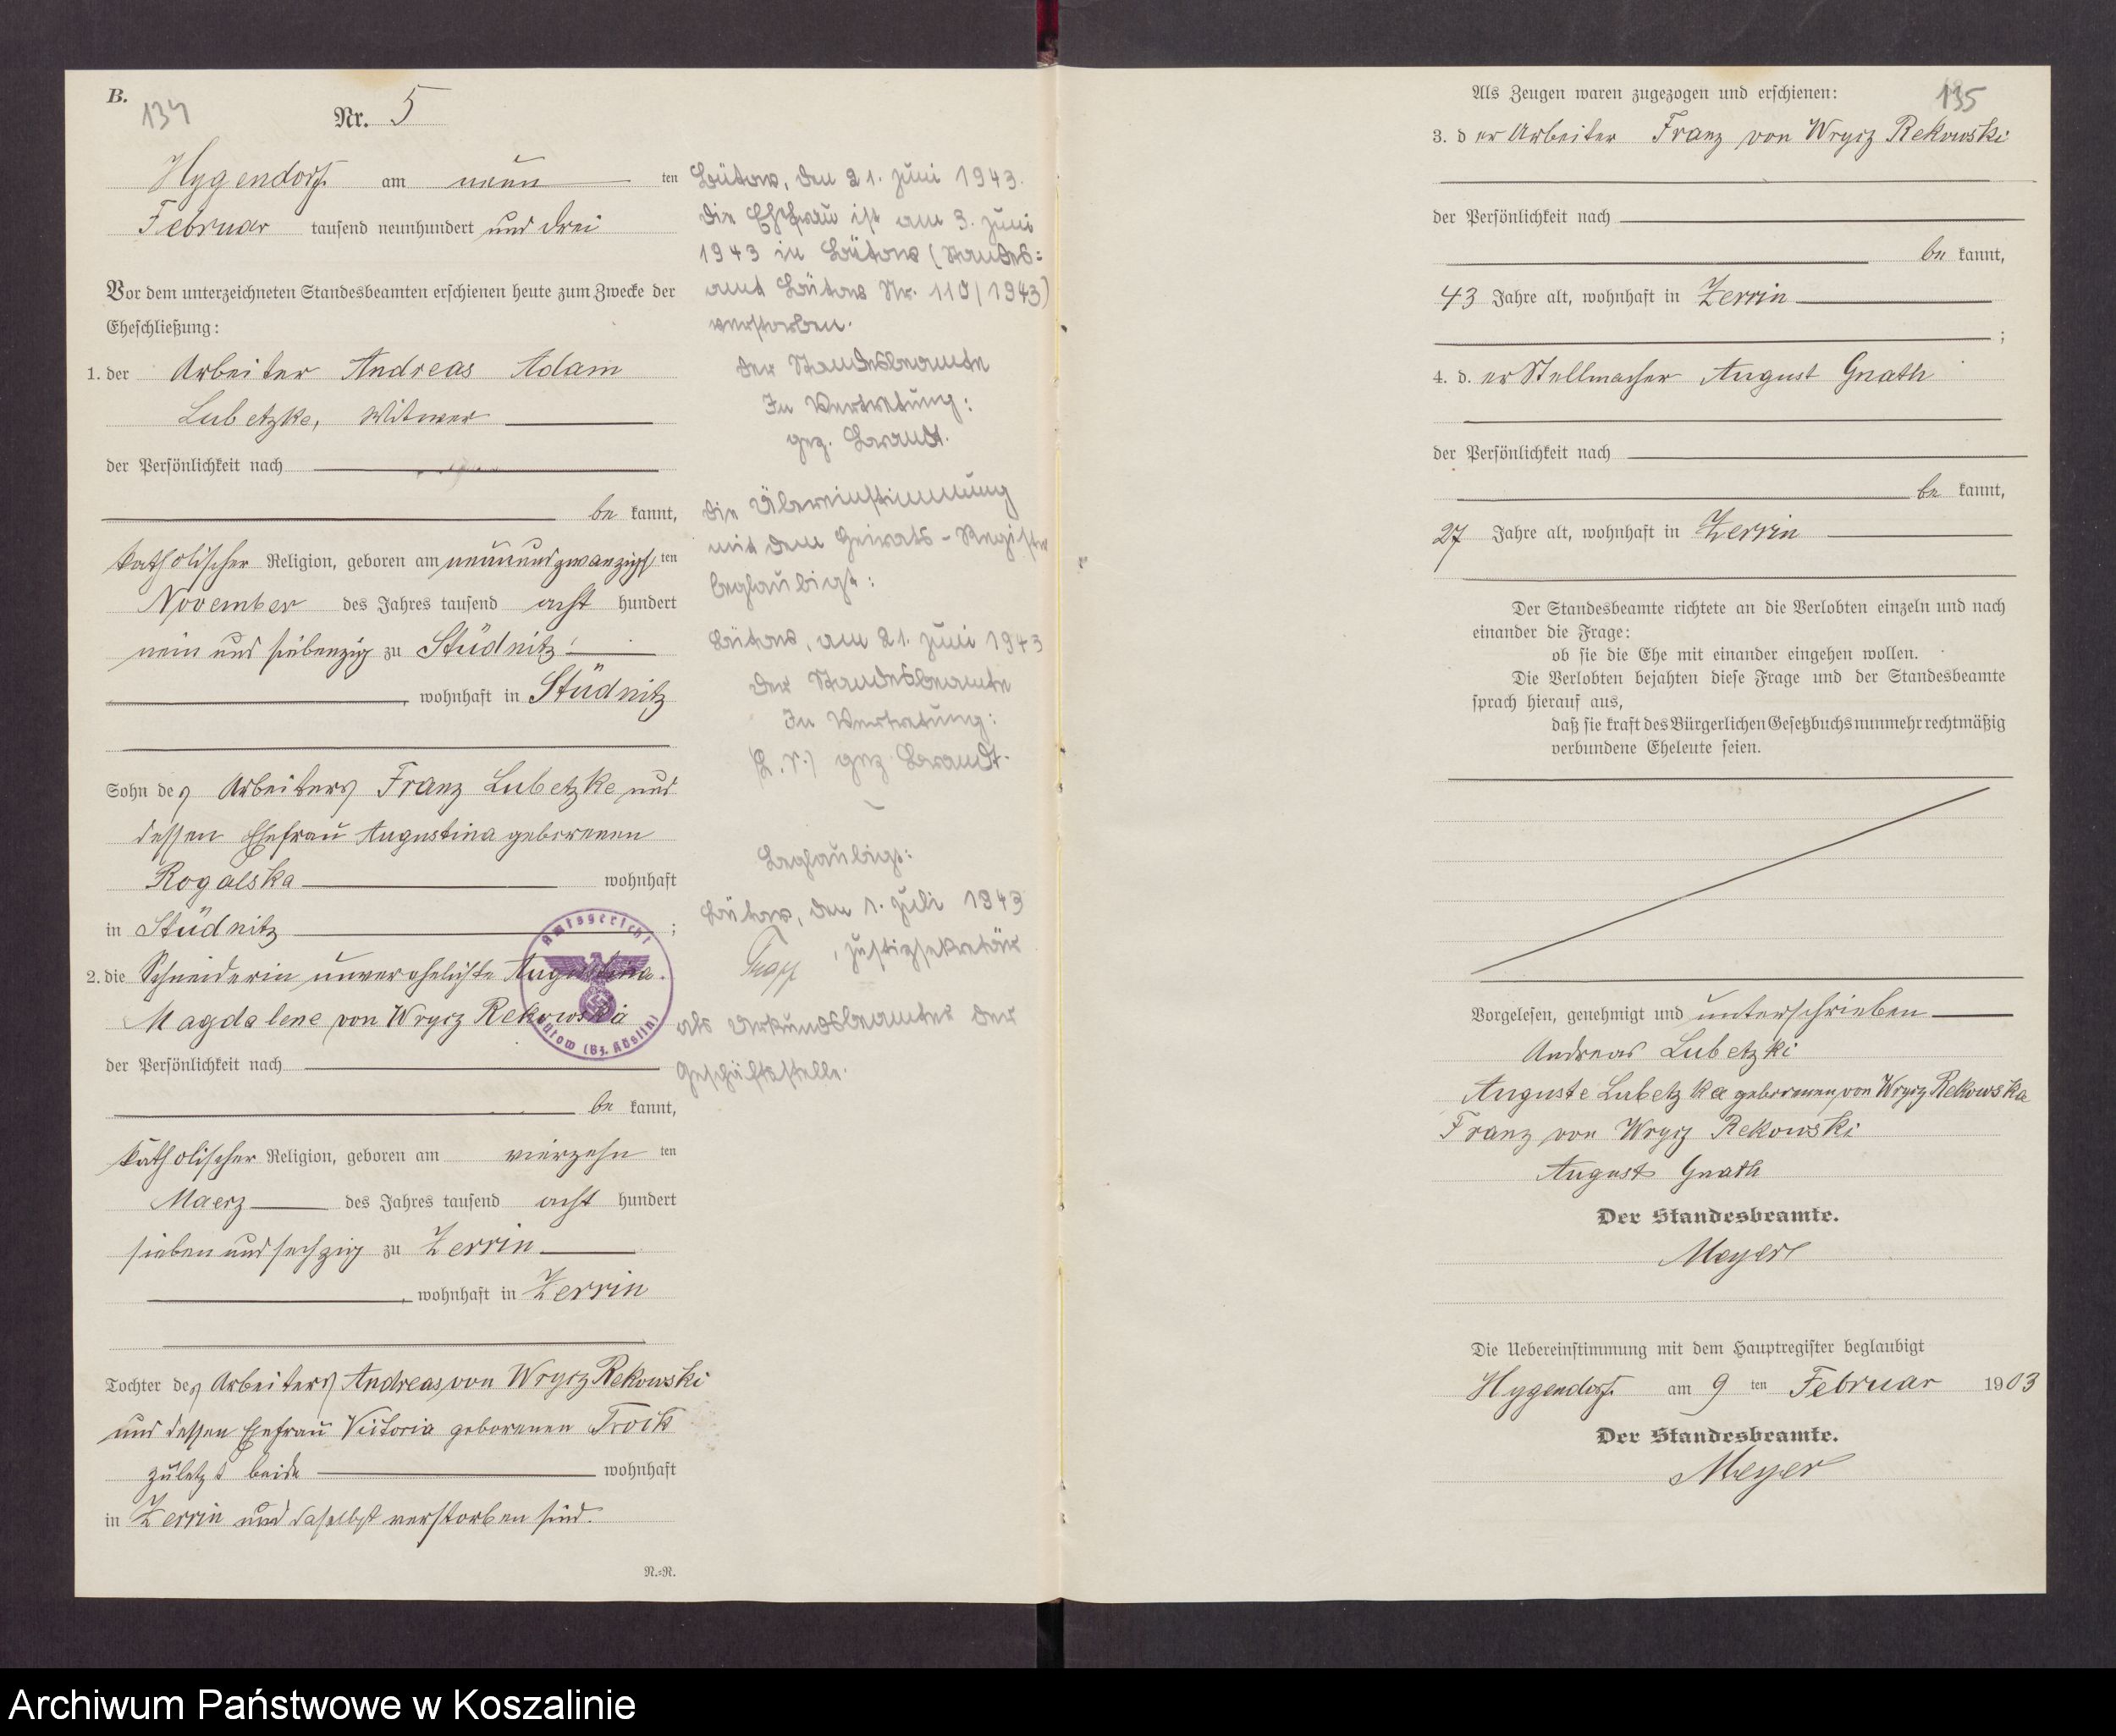 B.
134
Nr. 5
Hygendorf am neun ten
Februar tausend neunhundert und drei
Vor dem unterzeichneten Standesbeamten erschienen heute zum Zwecke der
Eheschließung:
1. der Arbeiter Andreas Adam
Lubetzke, Witwer
der Persönlichkeit nach
be kannt,
katholischer Religion, geboren am neunundzwanzigs ten
November des Jahres tausend acht hundert
nein und siebenzig zu Stüdnitz
, wohnhaft in Stüdnitz
Sohn des Arbeiters Franz Lubetzke und
dessen Ehefrau Augustina geborenen
Rogalska wohnhaft
in Stüdnitz ;
2. die Schneiderin unverehelichte Augustina
Magdalene von Wrycz Rekowska
der Persönlichkeit nach
be kannt,
katholischer Religion, geboren am vierzehn ten
Maerz des Jahres tausend acht hundert
sieben und sechzig zu Zerrin
, wohnhaft in Zerrin
Tochter des Arbeiters Andreas von Wrycz Rekowski
und dessen Ehefrau Victoria geborenen Troik
zuletzt beide wohnhaft
in Zerrin und daselbst verstorben sind.
N.=N.
Amtsgericht
Bütow (Bz. Köslin)
Bütow, den 21. Juni 1943.
Die Ehefrau ist am 3. Juni
1943 in Bütow (Standes=
amt Bütow Nr. 110/1943)
verstorben.
Der Standesbeamte
In Vertretung:
gez. Brandt.
Die Übereinstimmung
mit dem Heirats-Register
beglaubigt:
Bütow, am 21. Juni 1943
Der Standesbeamte
In Vertretung:
(L.S.) gez. Brandt.
Beglaubigt:
Bütow, den 1. Juli 1943
, Justizsekretär
als Urkundsbeamter der
Geschäftsstelle.
135
Als Zeugen waren zugezogen und erschienen:
3. d er Arbeiter Franz von Wrycz Rekowski
der Persönlichkeit nach
be kannt,
43 Jahre alt, wohnhaft in Zerrin
;
4. d. er Stellmacher August Gnath
der Persönlichkeit nach
be kannt,
27 Jahre alt, wohnhaft in Zerrin
Der Standesbeamte richtete an die Verlobten einzeln und nach
einander die Frage:
ob sie die Ehe mit einander eingehen wollen.
Die Verlobten bejahten diese Frage und der Standesbeamte
sprach hierauf aus,
daß sie kraft des Bürgerlichen Gesetzbuchs nunmehr rechtmäßig
verbundene Eheleute seien.
Vorgelesen, genehmigt und unterschrieben
Andreas Lubetzki
Auguste Lubetzka geborenen von Wrycz Rekowska
Franz von Wrycz Rekowski
August Gnath
Der Standesbeamte.
Meyer
Die Uebereinstimmung mit dem Hauptregister beglaubigt
Hygendorf am 9 ten Februar 1903
Der Standesbeamte.
Meyer
Archiwum Państwowe w Koszalinie